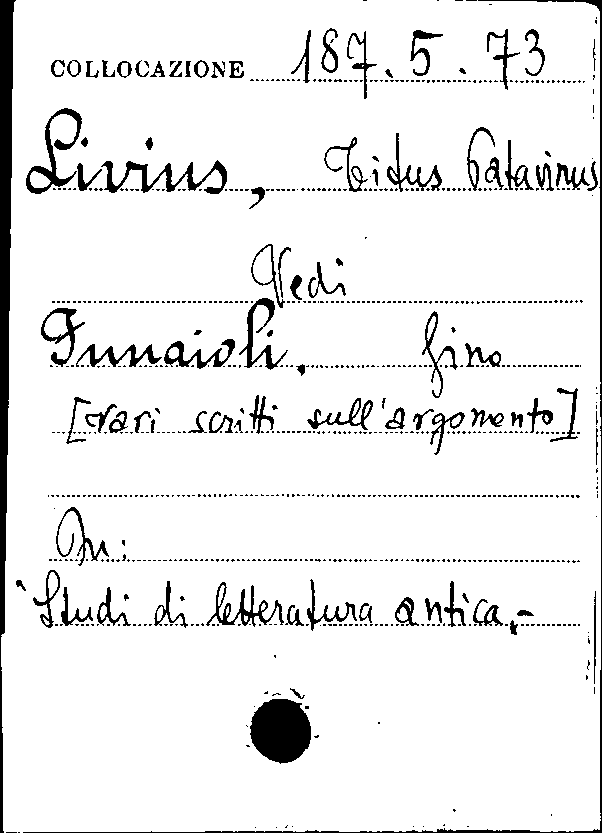 COLLOCAZIONE 187.5.73
Livius, Titus Patavinus
Vedi
Funaioli, Gino
[Vari scritti sull'argomento]
In:
Studi di letteratura antica.-